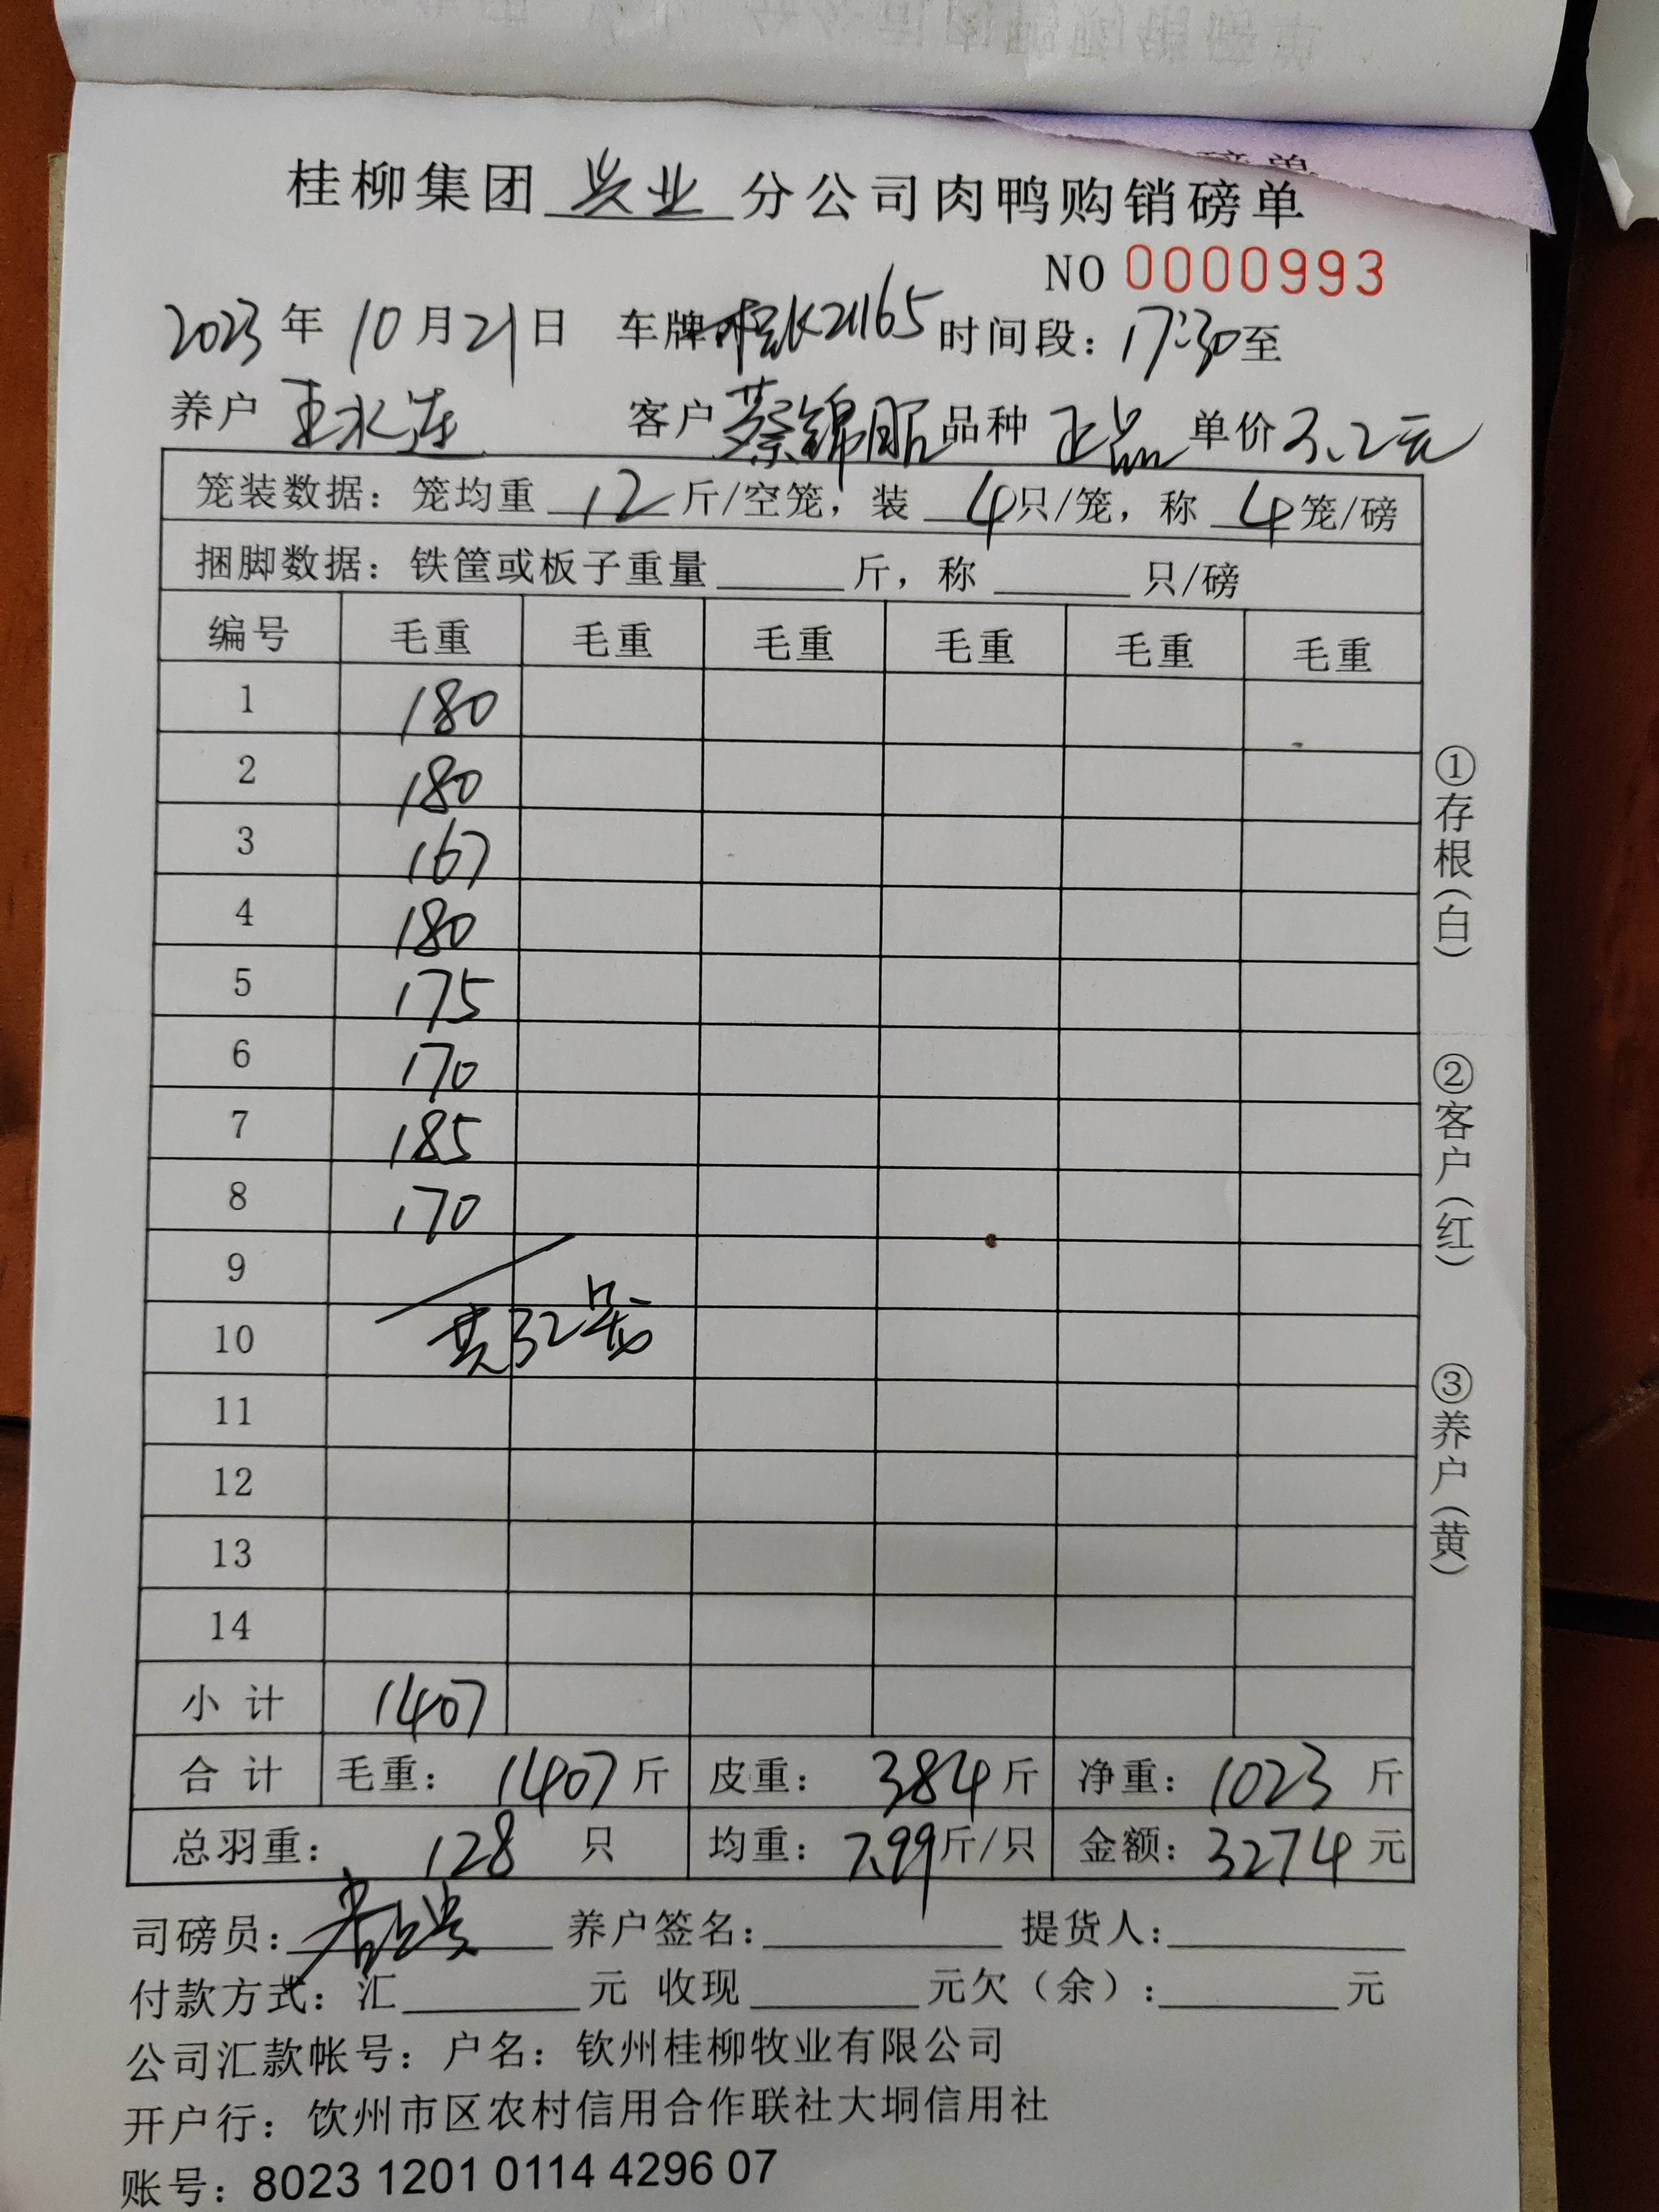 桂柳集团 兴业 分公司肉鸭购销磅单
NO 0000993
2023 年 10 月 21 日 车牌 桂K21165 时间段: 17:30 至
养户 王永连 客户 蔡锦昭 品种 正品 单价 3.2元
笼装数据: 笼均重 12 斤/空笼, 装 4 只/笼, 称 4 笼/磅
捆脚数据: 铁筐或板子重量 斤, 称 只/磅
编号 毛重 毛重 毛重 毛重 毛重 毛重
1 180
2 180
3 167
4 180
5 175
6 170
7 185
8 170
9
10 共32
11
12
13
14
小计 1407
合计 毛重: 1407 斤 皮重: 384 斤 净重: 1023 斤
总羽重: 128 只 均重: 7.99 斤/只 金额: 3274 元
司磅员: 养户签名: 提货人:
付款方式: 汇 元 收现 元欠(余): 元
公司汇款帐号: 户名: 钦州桂柳牧业有限公司
开户行: 钦州市区农村信用合作联社大垌信用社
账号: 8023 1201 0114 4296 07
①存根(白)
②客户(红)
③养户(黄)